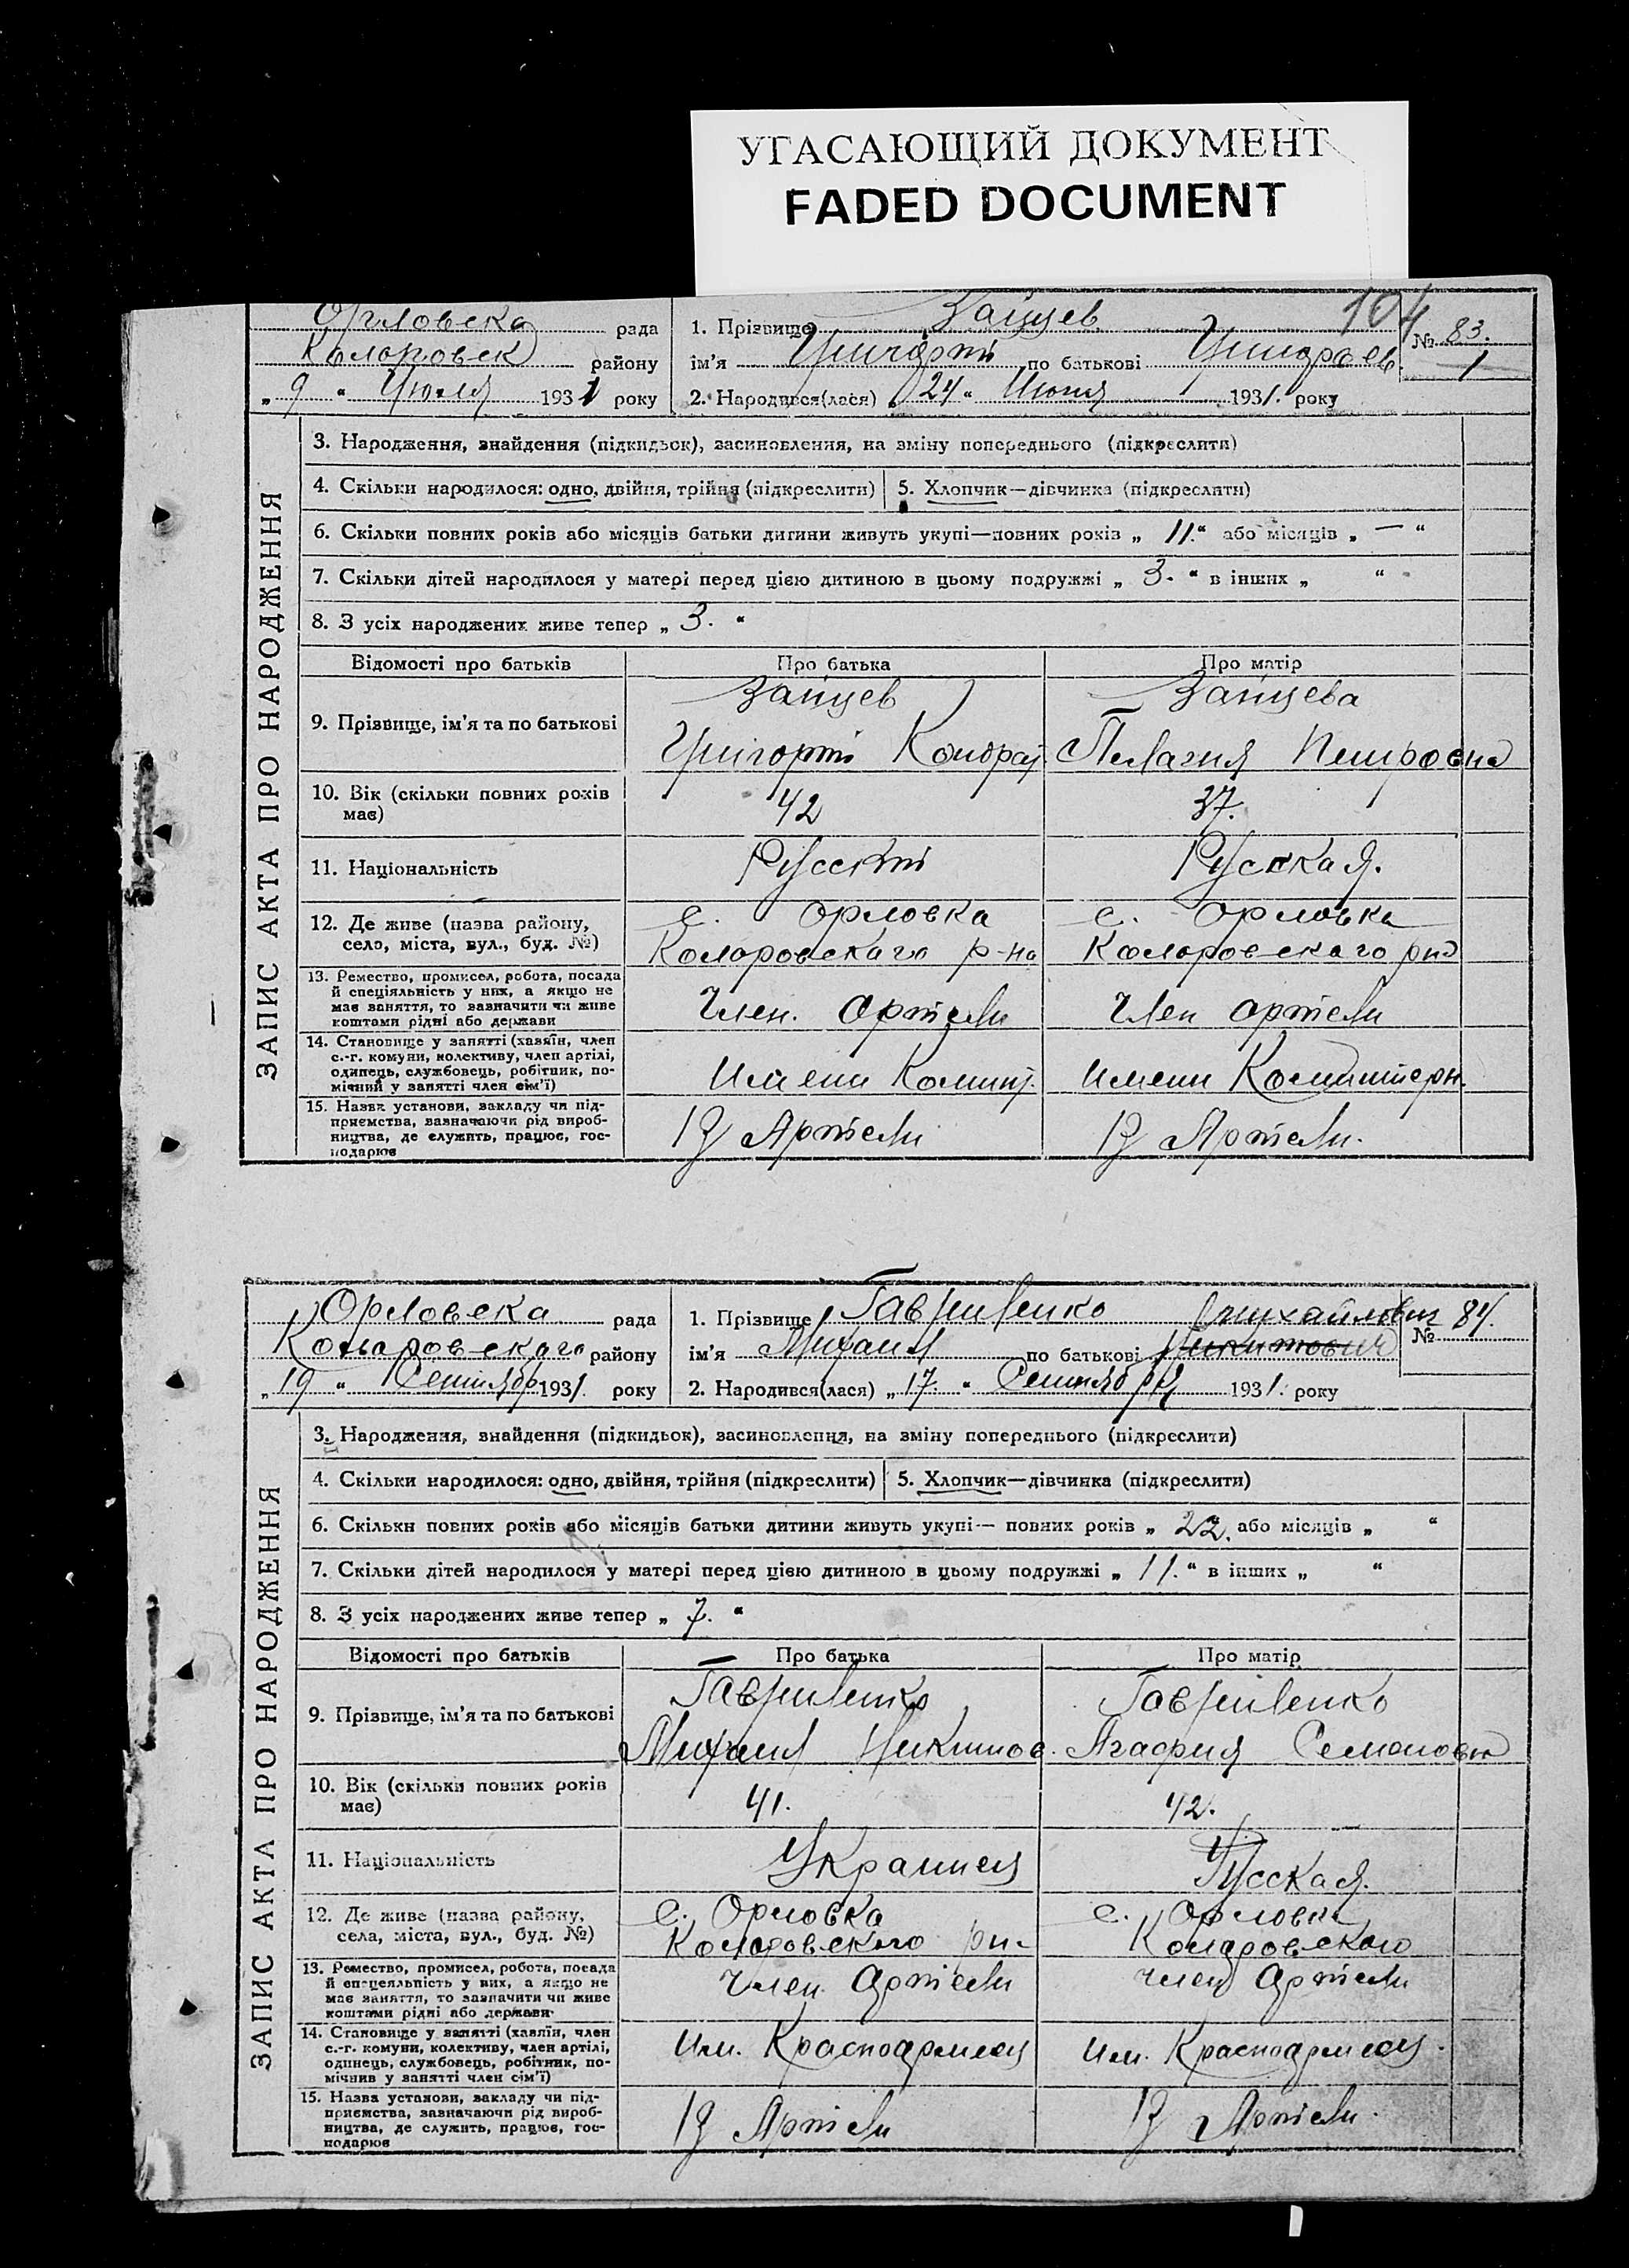 УГАСАЮЩИЙ ДОКУМЕНТ
FADED DOCUMENT
104
Орловска рада
Коларовск району
„ 9 “ Июля 1931 року
1. Прізвище Зайцев
ім'я Григорій по батькові
№ 83.
1
2. Народився(лася) „ 24 “ Июня 1931. року
ЗАПИС АКТА ПРО НАРОДЖЕННЯ
3. Народження, знайдення (підкидьок), засиновлення, на зміну попереднього (підкреслити)
4. Скільки народилося: одно, двійня, трійня (підкреслити) 5. Хлопчик—дівчинка (підкреслити)
6. Скільки повних років або місяців батьки дитини живуть укупі—повних років „ 11. “ або місяців „ — “
7. Скільки дітей народилося у матері перед цією дитиною в цьому подружжі „ 3. “ в інших „ “
8. З усіх народжених живе тепер „ 3. “
Відомості про батьків Про батька Про матір
9. Прізвище, ім'я та по батькові
Зайцев Зайцева
Григорій Кондрат. Пелагия Петровна
10. Вік (скільки повних років має) 42 37.
11. Національність Русский Русская.
12. Де живе (назва району, село, міста, вул., буд. №)
с. Орловка с. Орловка
Коларовскаго р-на Коларовскаго рна
13. Ремество, промисел, робота, посада
й спеціяльність у них, а якщо не
має заняття, то зазначити чи живе
коштами рідні або держави
Член. Артели Член артели
14. Становище у занятті (хазяїн, член
с.-г. комуни, колективу, член артілі,
одинець, службовець, робітник, по-
мічний у занятті член сім'ї)
Имени Коминт. Имени Коминтерн.
15. Назва установи, закладу чи під-
приємства, зазначаючи рід вироб-
ництва, де служить, працює, гос-
подарює
В Артели В Артели.
Орловска рада
Коларовскаго району
„ 19 “ Сентября 1931. року
1. Прізвище Гавриленко
Михайлович
ім'я Михаил по батькові Никитович
№ 84.
2. Народився(лася) „ 17. “ Сентября 1931. року
ЗАПИС АКТА ПРО НАРОДЖЕННЯ
3. Народження, знайдення (підкидьок), засиновлення, на зміну попереднього (підкреслити)
4. Скільки народилося: одно, двійня, трійня (підкреслити) 5. Хлопчик—дівчинка (підкреслити)
6. Скільки повних років або місяців батьки дитини живуть укупі— повних років „ 22. або місяців „ “
7. Скільки дітей народилося у матері перед цією дитиною в цьому подружжі „ 11. “ в інших „ “
8. З усіх народжених живе тепер „ 7. “
Відомості про батьків Про батька Про матір
9. Прізвище, ім'я та по батькові
Гавриленко Гавриленко
Михаил Никитов. Агафия Семеновна
10. Вік (скільки повних років має) 41. 42.
11. Національність Украинец Русская.
12. Де живе (назва району,
села, міста, вул., буд. №)
с. Орловка с. Орловка
Коларовского рн. Коларовского
13. Ремество, промисел, робота, посада
й спецеяльність у них, а якщо не
має заняття, то зазначити чи живе
коштами рідні або держави
Член. Артели член Артели
14. Становище у занятті (хазяїн, член
с.-г. комуни, колективу, член артілі,
одинець, службовець, робітник, по-
мічнив у занятті член сім'ї)
Им. Красноармеец Им. Красноармеец.
15. Назва установи, закладу чи під-
приємства, зазначаючи рід вироб-
ництва, де служить, працює, гос-
подарює
В Артели В Артели.